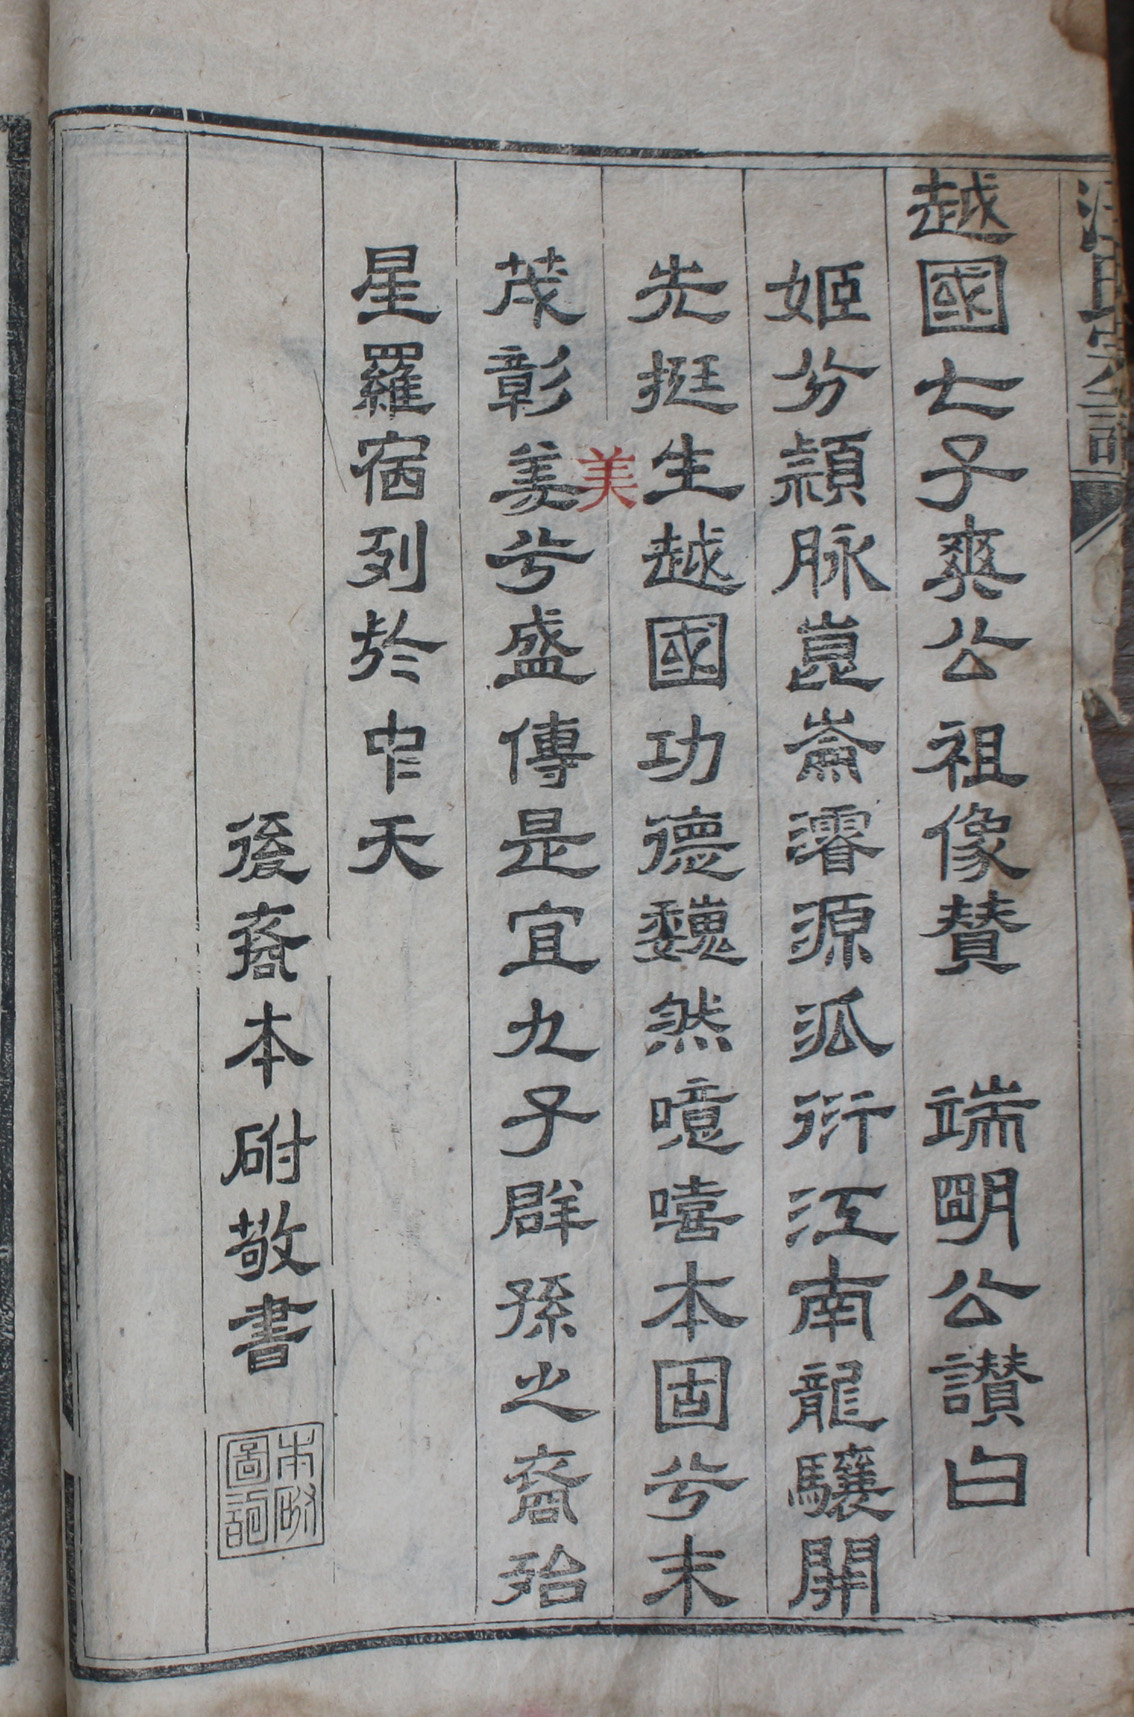 汪氏宗譜
越國七子爽公祖像贊 端明公讃白
姬分頴脉崑崙濬源派衍江南龍驤開
先挺生越國功德巍然噫嘻本固兮末
茂彰美兮盛傳是宜九子群孫之裔殆
美
星羅宿列於中天
後裔本附敬書